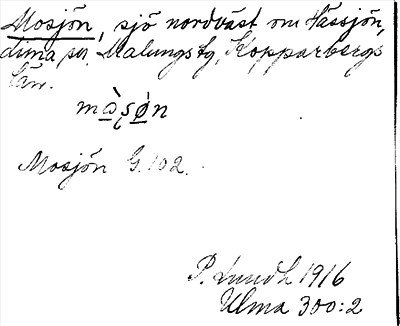 Mosjön, sjö nordväst om Vässjön,
Lima sn. Malungs tg, Kopparbergs
län.
Mosjön G. 102.
P. Lundh 1916
Ulma 300:2